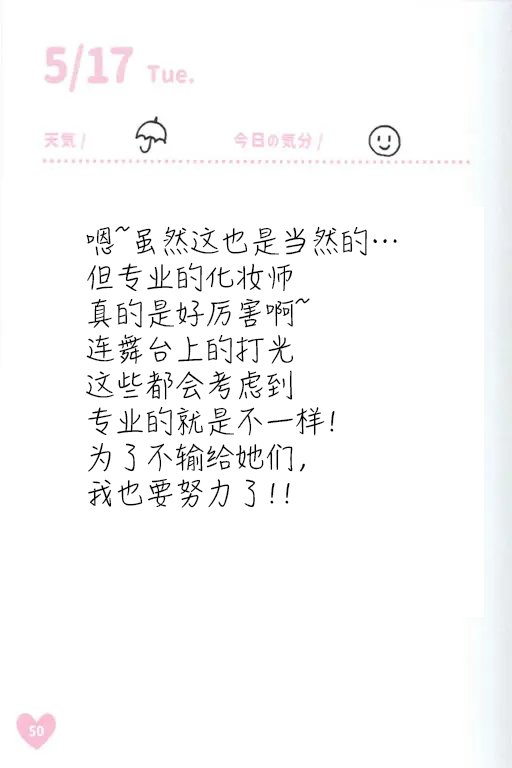 5/17 Tue.
天気 / 今日の気分 /
嗯~虽然这也是当然的…
但专业的化妆师
真的是好厉害啊~
连舞台上的打光
这些都会考虑到
专业的就是不一样!
为了不输给她们,
我也要努力了!!
50